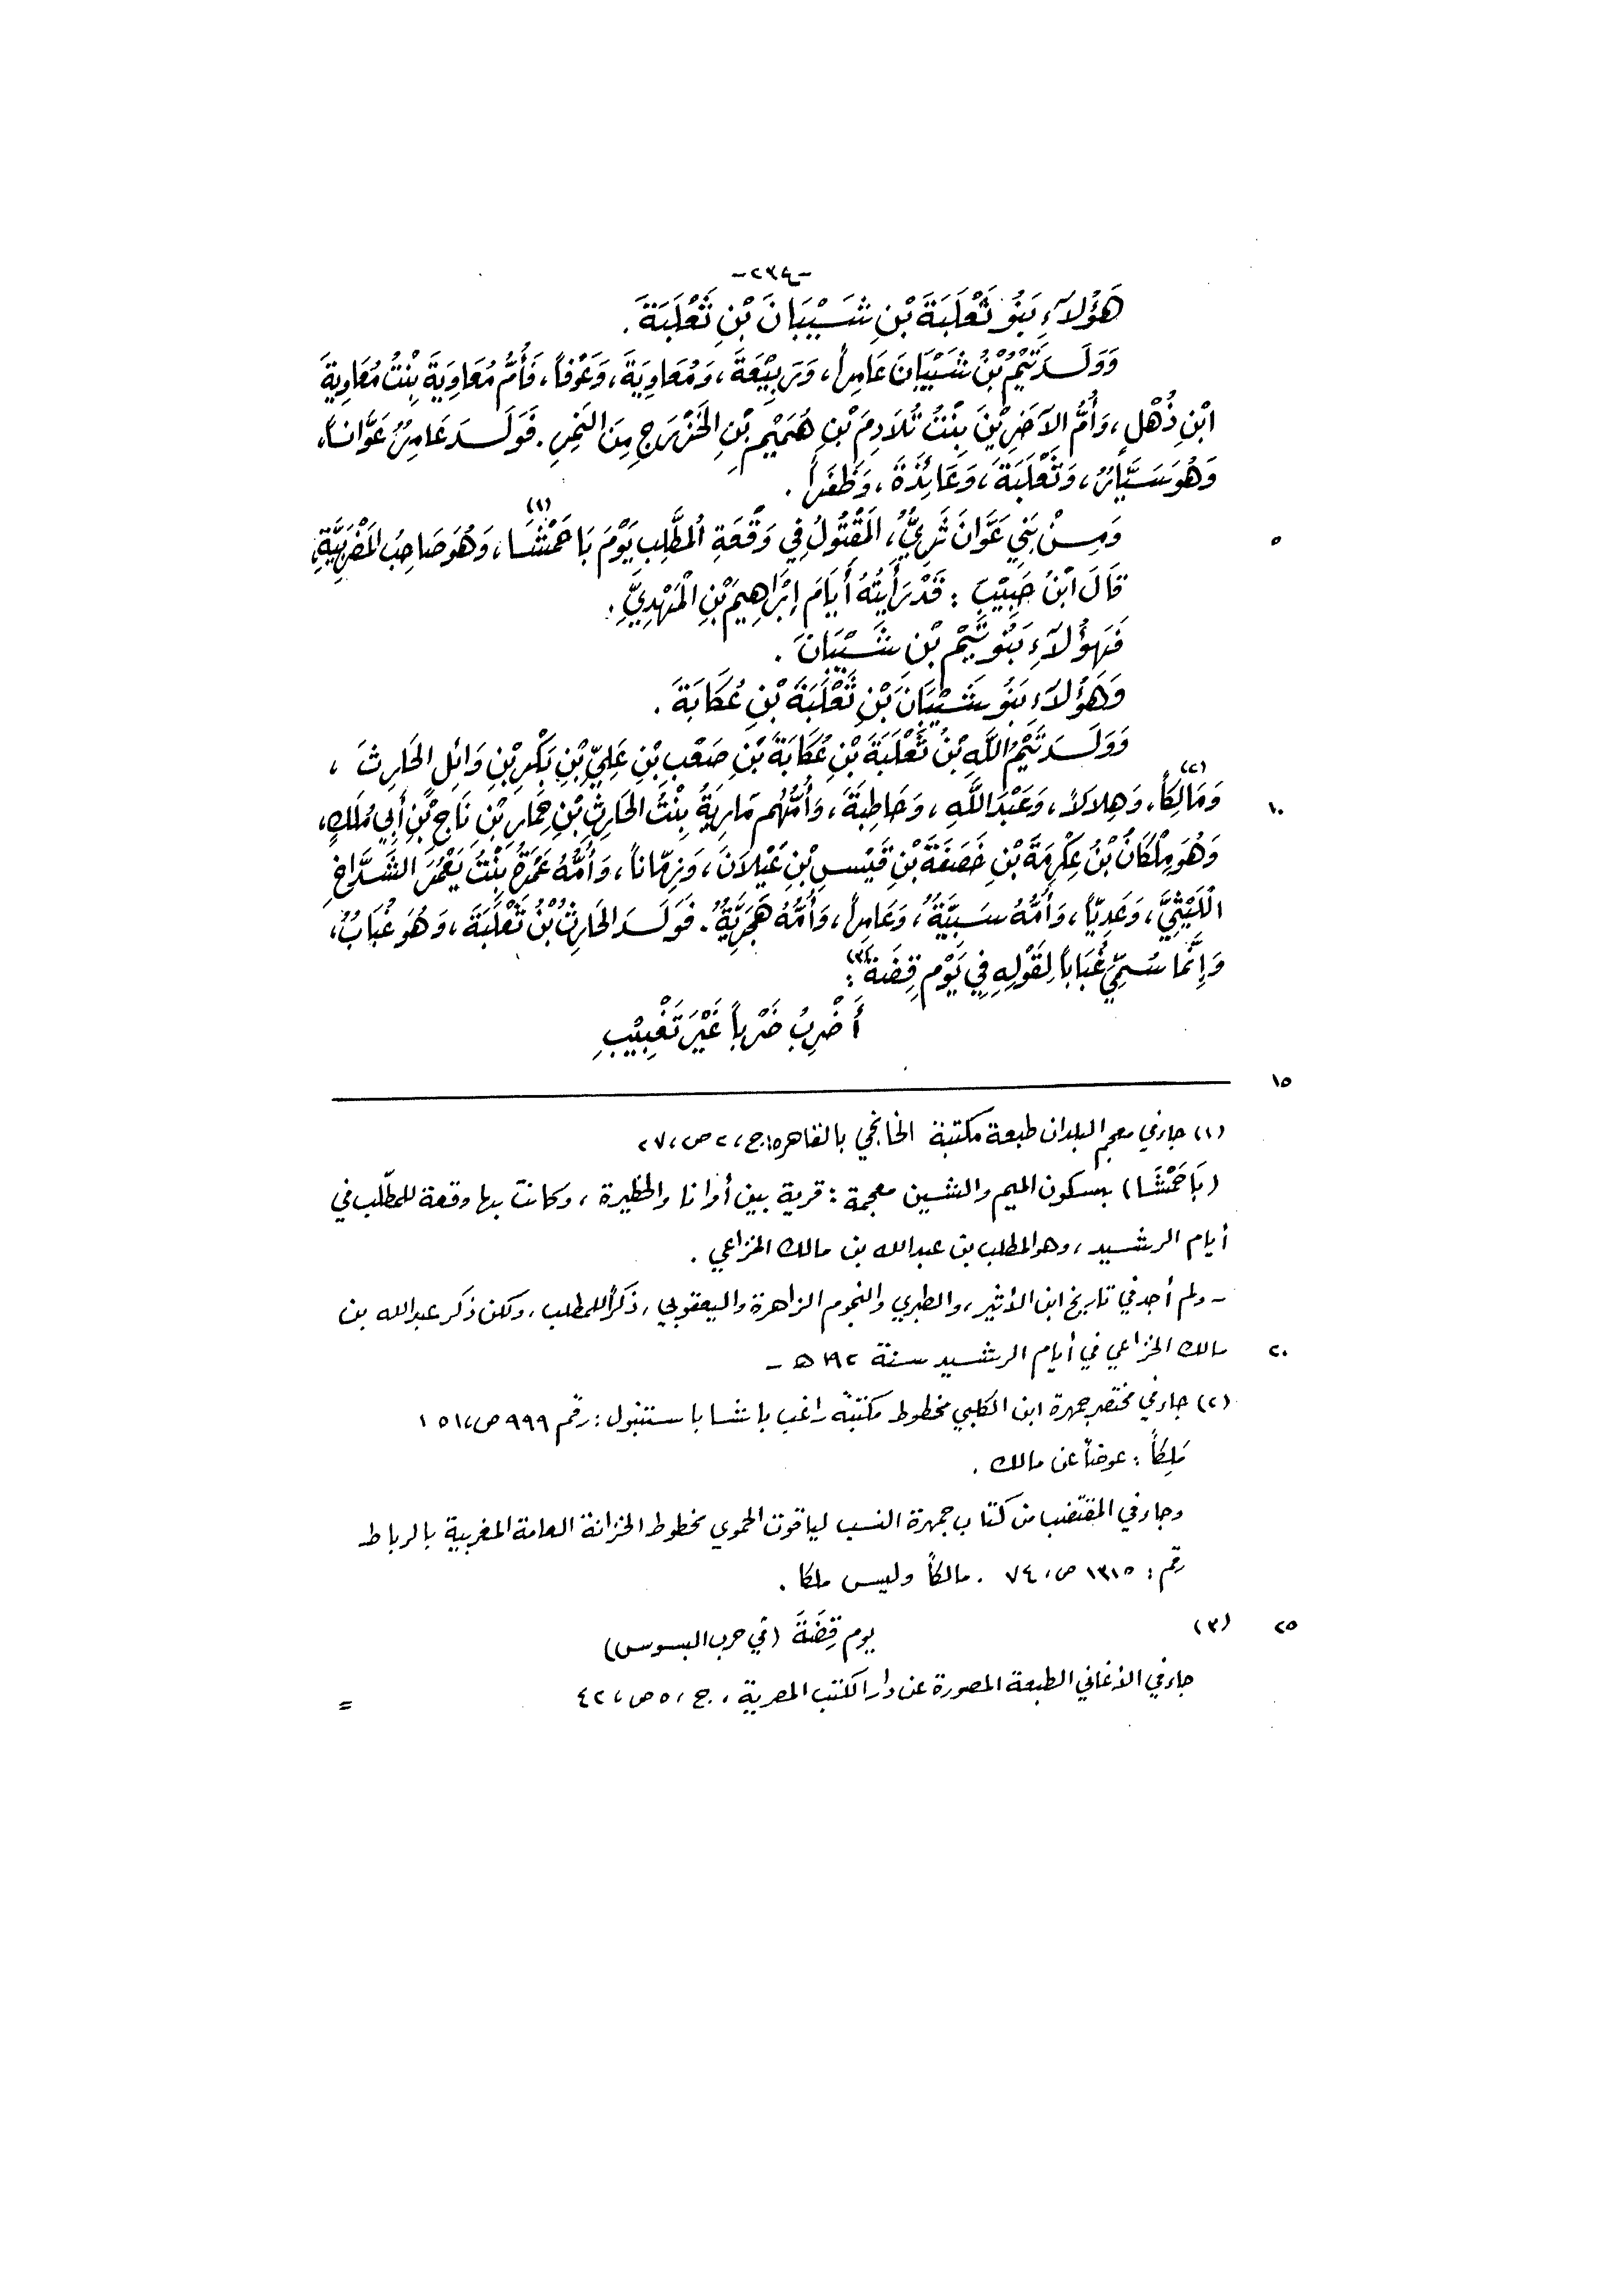 -٢٣٤-
هَؤُلَآءِ بَنُو ثَعْلَبَةَ بْنِ شَيْبَانَ بْنِ ثَعْلَبَةَ.
وَوَلَدَ تَيْمُ بْنُ شَيْبَانَ عَامِراً، وَرَبِيْعَةَ، وَمُعَاوِيَةَ، وَعَوْفاً، فَأُمُّ مُعَاوِيَةَ بِنْتُ مُعَاوِيَةَ
ابْنِ ذُهْلٍ، وَأُمُّ الآخَرِيْنَ بِنْتُ تُلَادِمَ بْنِ هُمَيْمِ بْنِ الخَزْرَجِ مِنَ النَّمِرِ. فَوَلَدَ عَامِرٌ عَوَّاناً،
وَهُوَ سَيَّارٌ، وَثَعْلَبَةَ، وَعَائِذَةَ، وَظَفَراً.
٥ وَمِنْ بَنِي عَوَّانَ ثَرِيٌّ، المَقْتُولُ فِي وَقْعَةِ المُطَّلِبِ يَوْمَ بَاحَمْشَا(١)، وَهُوَ صَاحِبُ المَضَرِيَّةِ،
قَالَ ابْنُ حَبِيْبٍ: قَدْ رَأَيْتُهُ أَيَامَ إِبْرَاهِيمَ بْنِ الْمَهْدِيِّ.
فَهَؤُلَآءِ بَنُو تَيْمِ بْنِ شَيْبَانَ.
وَهَؤُلَاءِ بَنُو شَيْبَانَ بْنِ ثَعْلَبَةَ بْنِ عُكَابَةَ.
وَوَلَدَ تَيْمُ اللَّهِ بْنُ ثَعْلَبَةَ بْنِ عُكَابَةَ بْنِ صَعْبِ بْنِ عَلِيِّ بْنِ بَكْرِ بْنِ وَائِلٍ الحَارِثَ،
١٠ وَمَالِكاً(٢)، وَهِلَالاً، وَعَبْدَ اللَّهِ، وَحَاطِبَةَ، وَأُمُّهُم مَارِيَةُ بِنْتُ الحَارِثِ بْنِ حِمَارِ بْنِ نَاجِ بْنِ أَبِي مُلَكٍ،
وَهُوَ مِلْكَانُ بْنُ عِكْرِمَةَ بْنِ خَصَفَةَ بْنِ قَيْسِ بْنِ عَيْلَانَ، وَزِمَّاناً، وَأُمُّهُ عَمْرَةُ بِنْتُ يَعْمُرَ الشَّدَّاخِ
اللَّيْثِيَّ، وَعَدِيّاً، وَأُمُّهُ سَبِيَّةٌ، وَعَامِراً، وَأُمُّهُ هَجَرِيَّةٌ. فَوَلَدَ الحَارِثُ بْنُ ثَعْلَبَةَ، وَهُوَ غُبَابٌ،
وَإِنَّمَا سُمِّيَ غُبَاباً لِقَوْلِهِ فِي يَوْمِ قِضَةَ(٣):
أَضْرِبُ ضَرْباً غَيْرَ تَغْبِيْبِ
١٥
(١) جاء في معجم البلدان طبعة مكتبة الخانجي بالقاهرة: ج، ٢ ص، ٢٧
(بَاحَمْشَا) بسكون الميم والشين معجمة: قرية بين أوانا والحظيرة، وكانت بها وقعة للمطّلب في
أيام الرشيد، وهو المطلب بن عبدالله بن مالك الخزاعي.
- ولم أجد في تاريخ ابن الأثير، والطبري والنجوم الزاهرة واليعقوبي، ذكراً للمطلب، ولكن ذكر عبدالله بن
٢٠ مالك الخزاعي في أيام الرشيد سنة ١٩٢ هـ -
(٢) جاء في مختصر جمهرة ابن الكلبي مخطوط مكتبة راغب باشا باستنبول: رقم ٩٩٩ ص، ١٥١
مَلِكاً: عوضاً عن مالك.
وجاء في المقتضب من كتاب جمهرة النسب لياقوت الحموي مخطوط الخزانة العامة المغربية بالرباط
رقم: ١٣١٥ ص، ٧٤. مالكاً وليس ملكا.
٢٥ (٣) يوم قِضَةَ (في حرب البسوس)
جاء في الأغاني الطبعة المصورة عن دار الكتب المصرية، ج، ٥ ص، ٤٢ =